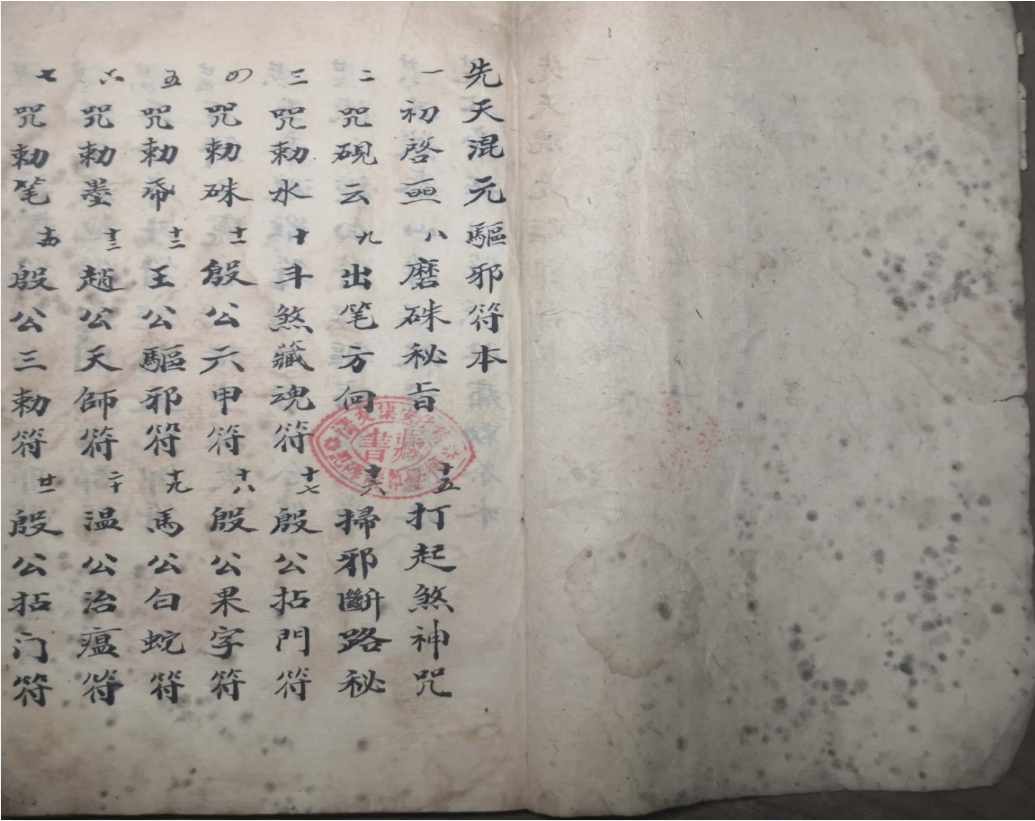 先天混元驅邪符本
一 初啓
八 磨硃秘旨
十五 打起煞神咒
二 咒硯云
九 出笔方向
十六 掃邪斷路秘
三 咒勅水
十 斗煞藏魂符
十七 殷公拈門符
四 咒勅硃
十一 殷公六甲符
十八 殷公果字符
五 咒勅帋
十二 王公驅邪符
十九 馬公白蛇符
六 咒勅墨
十三 趙公天師符
二十 温公治瘟符
七 咒勅笔
十四 殷公三勅符
廿一 殷公拈门符
藏書